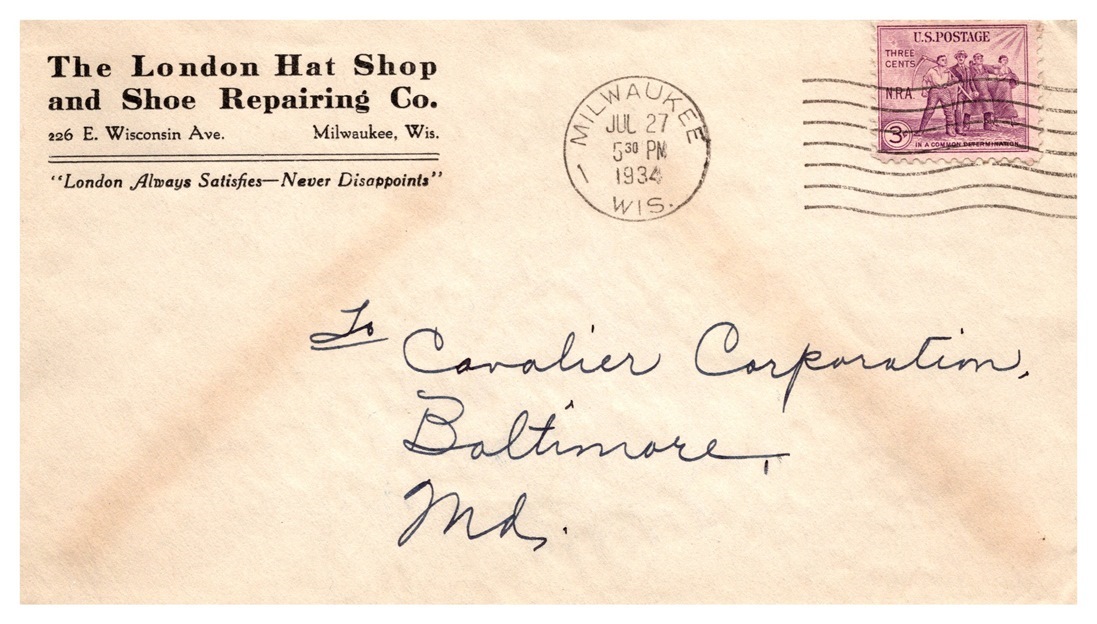 The London Hat Shop
and Shoe Repairing Co.
226 E. Wisconsin Ave. Milwaukee, Wis.
"London Always Satisfies—Never Disappoints"
MILWAUKEE
JUL 27
5 30 PM
1934
1
WIS.
U.S. POSTAGE
THREE
CENTS
N.R.A.
3c
IN A COMMON DETERMINATION
To
Cavalier Corporation,
Baltimore,
Md.